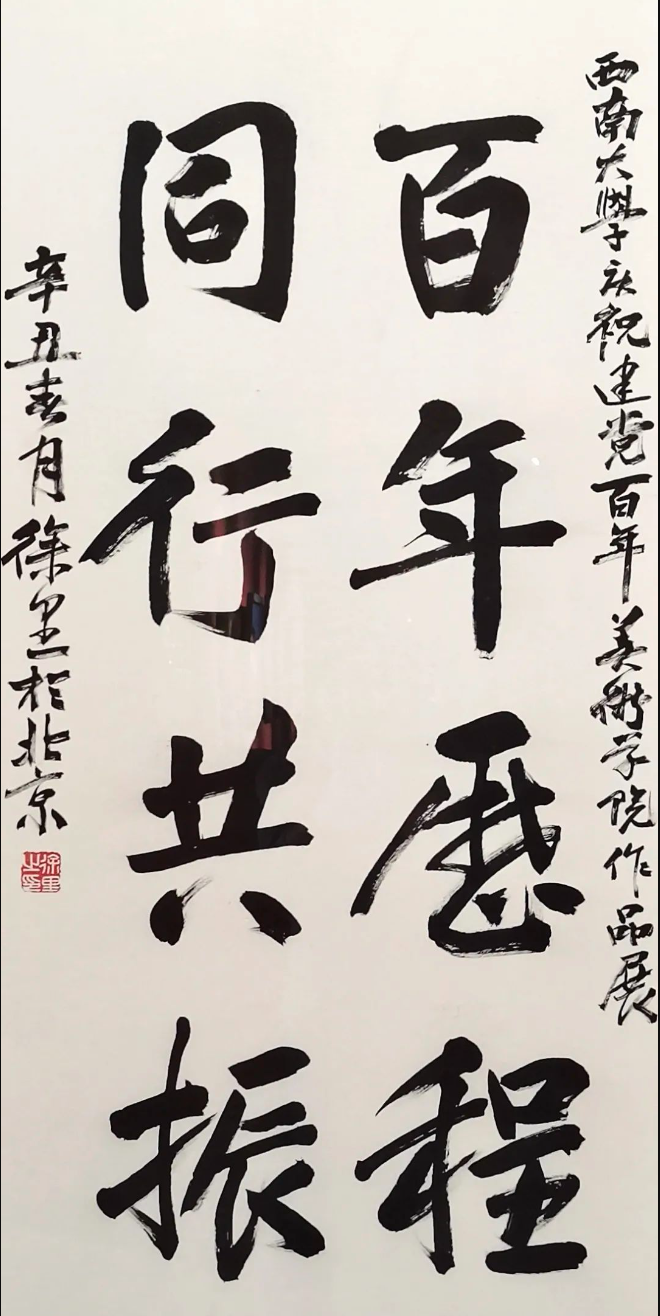 西南大學庆祝建党百年美术学院作品展
百年歷程
同行共振
辛丑春月徐里於北京
徐里之印